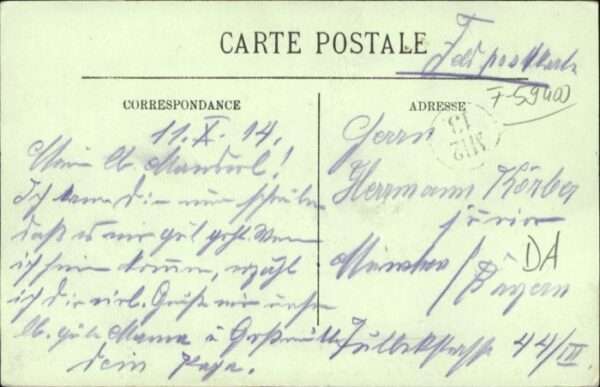 CARTE POSTALE
Feldpostkarte
F-59400
CORRESPONDANCE
ADRESSE
11. X. 14.
Mein lb. Manderl!
Ich kann Dir nur schreiben
daß es mir gut geht. Wenn
ich heim komme, erzähl
ich Dir viel. Grüße mir unsre
lb. gute Mama u Großmutter
Dein Papa.
Herrn
Herrmann Körber
junior
München / Bayern
DA
44/III